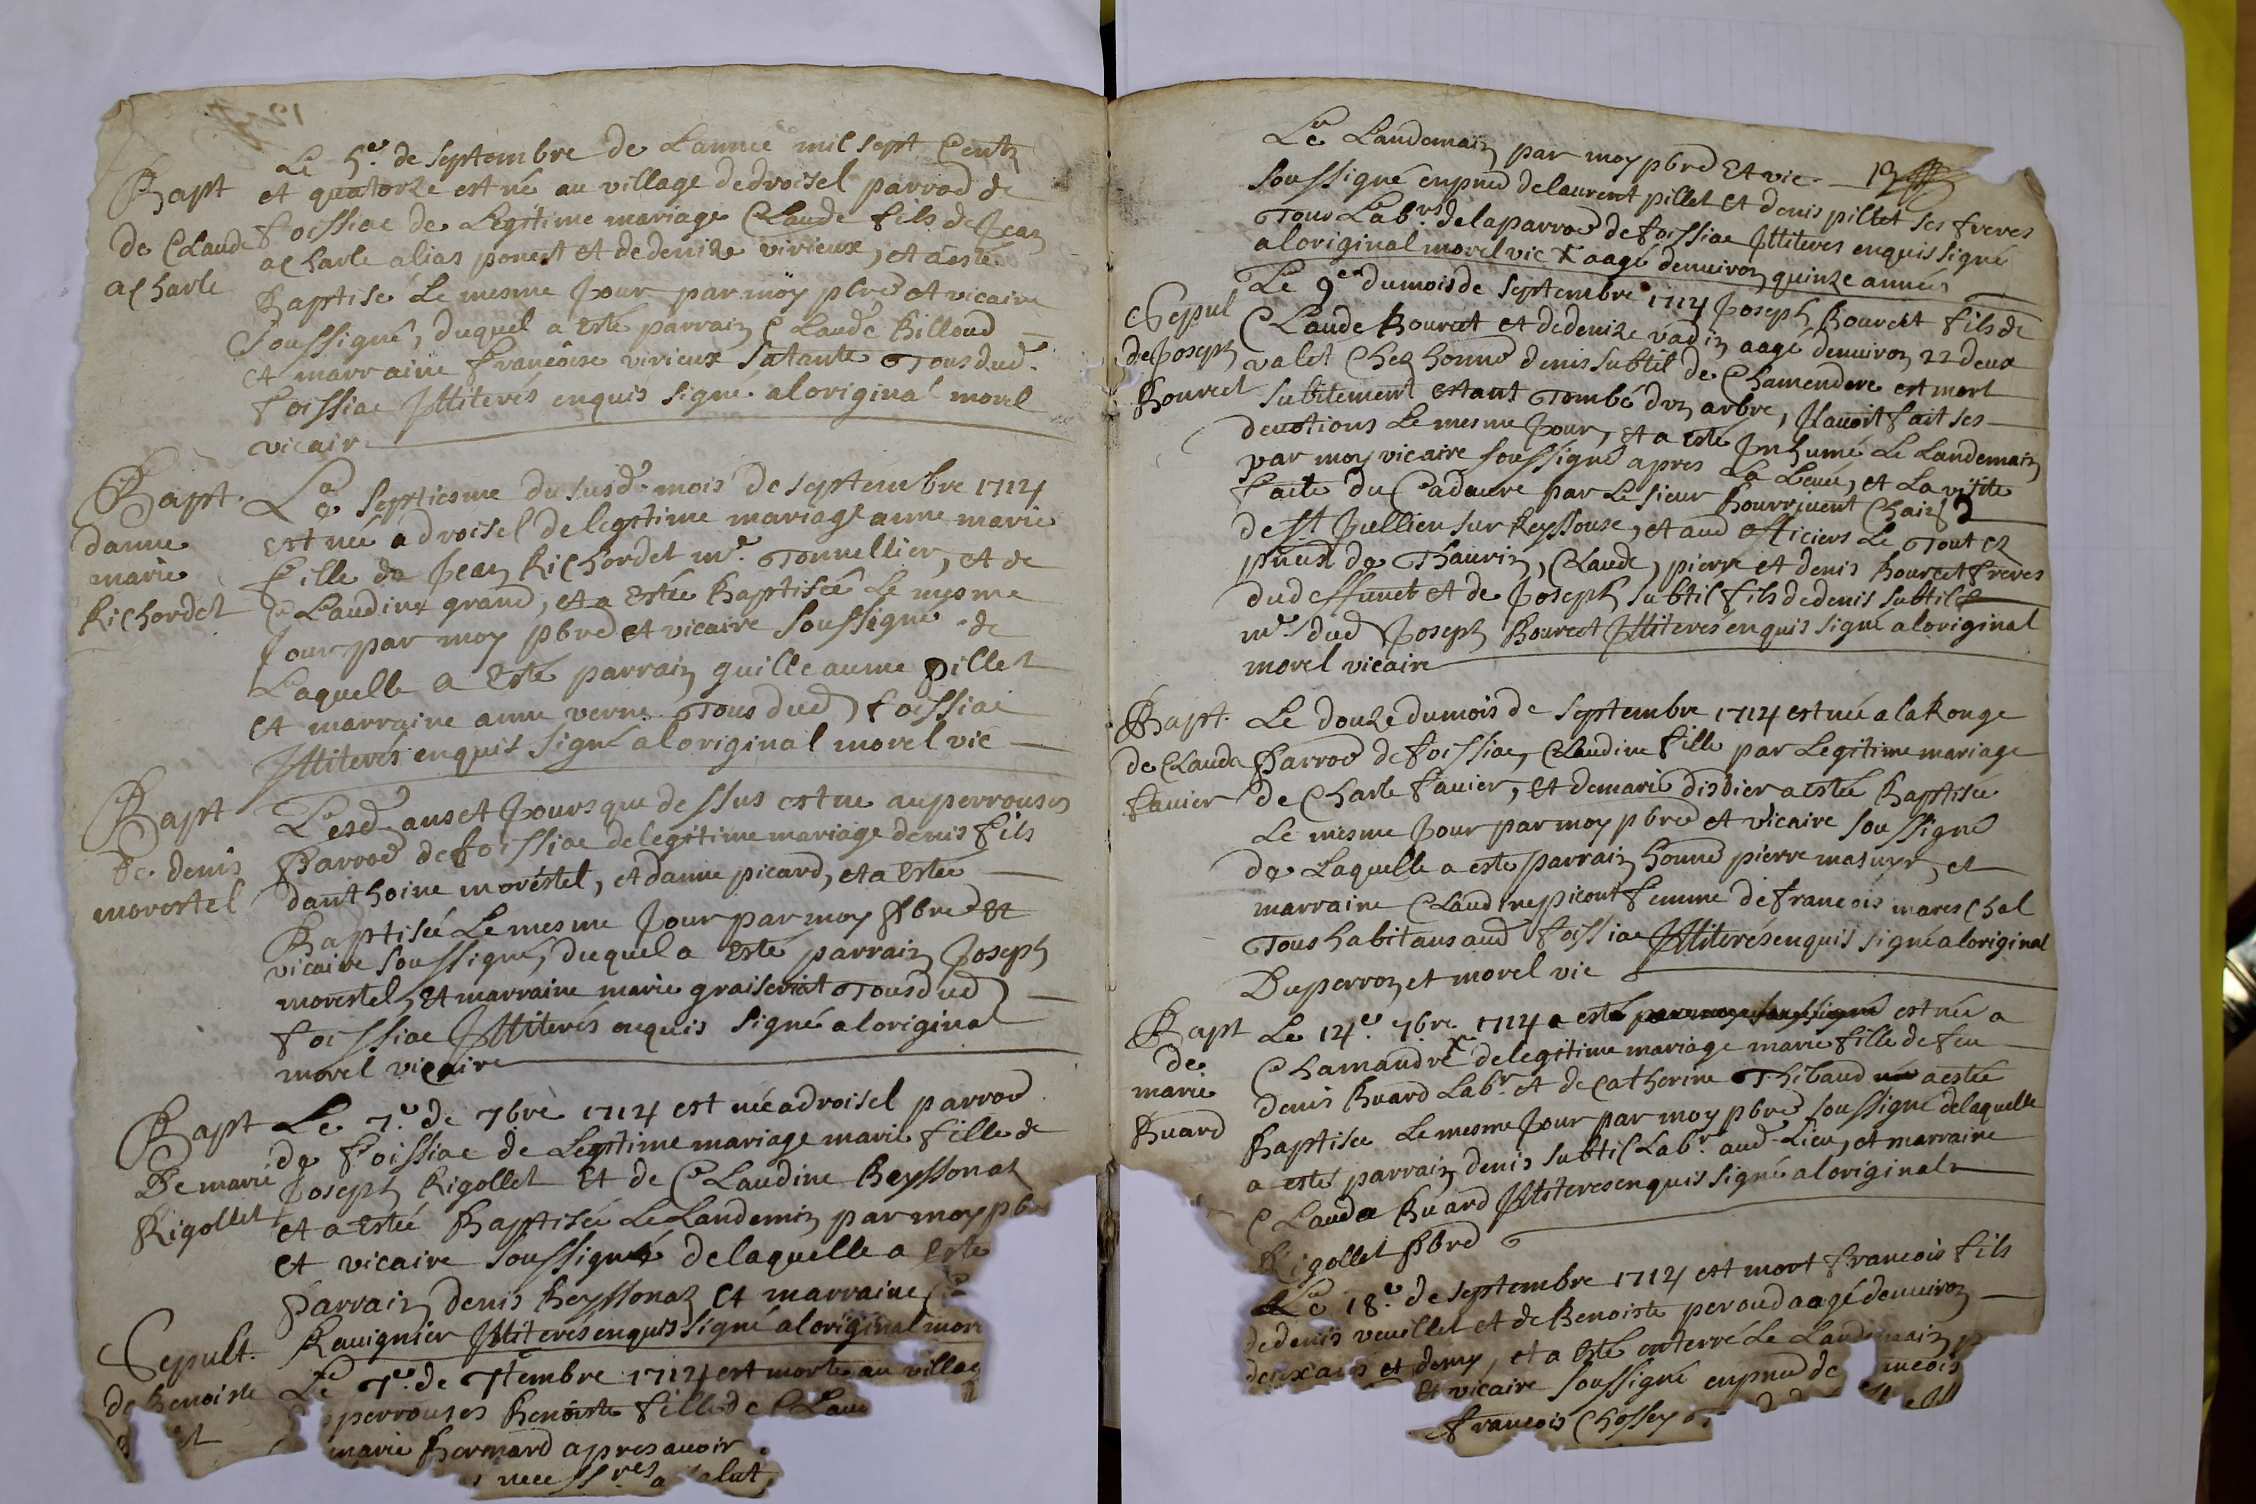 Bapt
de Claude
a Charle
Le 5e. de septembre de L'année mil sept Cents
et quatorze est né au village dedroisel parrod de
foissiac de Legitime mariage Claude fils de Jean
a Charle alias ponest et dedenize virieux, et a esté
Baptisé Le mesme Jour par moy pbre et vicaire
Soussigné, duquel a esté parrain Claude Billoud
et marraine francoise virieux sa tante Tous dud.
foissiac Illiterés enquis signé a loriginal morel
vicaire
Bapt.
danne
marie
Richordet
Le septiesme du susd. mois de septembre 1714
est née a droisel de legitime mariage anne marie
fille de Jean Richordet me. Tonnellier, et de
Claudine grand, et a estée Baptisée Le mesme
Jour par moy pbre et vicaire soussigné de
Laquelle a esté parrain guilleaume pillet
et marraine anne verne Tous dud foissiac
Illiterés enquis signé a loriginal morel vic
Bapt
de denis
morestel
Lesd. ans et Jours que dessus est né auperrouses
Parrod de foissiac delegitime mariage denis fils
danthoine morestel, et danne picard, et a estée
Baptisée Le mesme Jour par moy pbre et
vicaire soussigné, duquel a esté parrain Joseph
morestel, et marraine marie graiseriat Tous dud
foissiac Illiterés enquis signé a loriginal
morel vicaire
Bapt
De marie
Rigollet
Le 7e. de 7bre 1714 est née adroisel parrod
de foissiac de Legitime mariage marie fille de
Joseph Rigollet Et de Claudine Beyssonat
et a estée Baptisée Le Landemin par moy pb
et vicaire soussigné delaquelle a esté
parrain denis Beyssonat et marraine
Rauignier Illiteres enquis signé a loriginal more
Sepult.
de Benoiste
Le 7e. de 7tembre 1714 est morte au villag
perrouses Benoiste fille de Clau
marie Bernard apres auoir
necessres a salut
Le Landemain par moy pbre Et vic. 13
soussigné enpned delaurent pillet et denis pillet ses freres
Tous Labrs. delaparrod de foissiac Illiteres enquis signé
a loriginal morel vic X aagé denuiron quinze années
Sepul
de Joseph
Bourcet
Le 9e. dumois de septembre 1714 Joseph Bourcet fils de
Claude Bourcet et dedenize vadin aagé denuiron 22 deux
valet Chez honne denis subtil de Chamendere est mort
subitement estant Tombé dun arbre, Il auoit fait ses
deuotions Le mesme Jour, et a esté Inhumé Le Landemain
par moy vicaire soussigné apres La Leuée, et La visite
faite du Cadaure par Le sieur Bourriuent Chairg
de st Jullien sur Reyssouse, et aud officiers Le Tout en
pned de Thaurin, Claude, pierre et denis Bourcet freres
dud deffunct et de Joseph subtil fils dedenis subtil
me. dud Joseph Bourcet Illiterés enquis signé a loriginal
morel vicaire
Bapt.
de Clauda
fauier
Le douze dumois de septembre 1714 est née a la Ronge
Parrod de foissiac, Claudine fille par Legitime mariage
de Charle fauier, et demarie disdier a estée Baptisée
Le mesme Jour par moy pbre et vicaire soussigné
de Laquelle a esté parrain honne pierre masuyr et
marraine Claudine picout femme de francois mareschal
Tous habitans aud foissiac Illiterés enquis signé a loriginal
Duperron et morel vic
Bapt
de
marie
Buard
Le 14e. 7bre. 1714 a esté par moy soussigné est née a
Chamandre X delegitime mariage marie fille de feu
denis Buard Labr. et de Catherine Thibaud née a estée
Baptisee Le mesme Jour par moy pbre soussigné delaquelle
a esté parrain denis subtil Labr. aud Lieu, et marraine
Clauda Buard Illiteres enquis signé a loriginal
Rigollet Pbre
Le 18e. de septembre 1714 est mort francois fils
de denis veuillet et de Benoiste peroud aagé denuiron
deux ans et demy, et a esté enterré Le Landemain p
et vicaire soussigné enpned de
francois Chossey